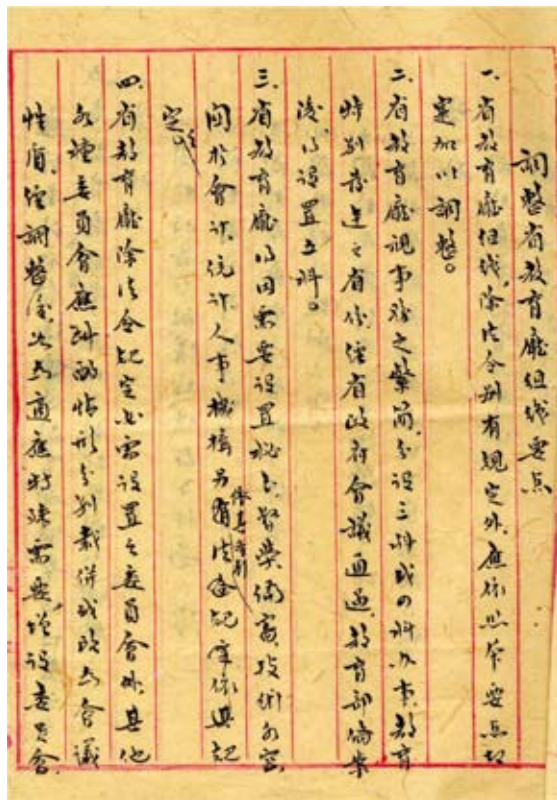 調整省教育廳組織要点
一、省教育廳組織，除法令別有規定外，應依照本要点切
定加以調整。
二、省教育廳視事務之繁簡，分設三科或四科办事，教育
特別發達之省份，經省政府會議通過，教育部備案
後得設置五科。
三、省教育廳得因需要設置秘书、督學、編審、技術各室，
関於會計、統計、人事機構另有法令規定依其規
定
四、省教育廳除法令規定必需設置之委員會外，其他
各種委員會應斟酌情形分別裁併或改為會議
性質，經調整後如為適應特殊需要，增設委員會，